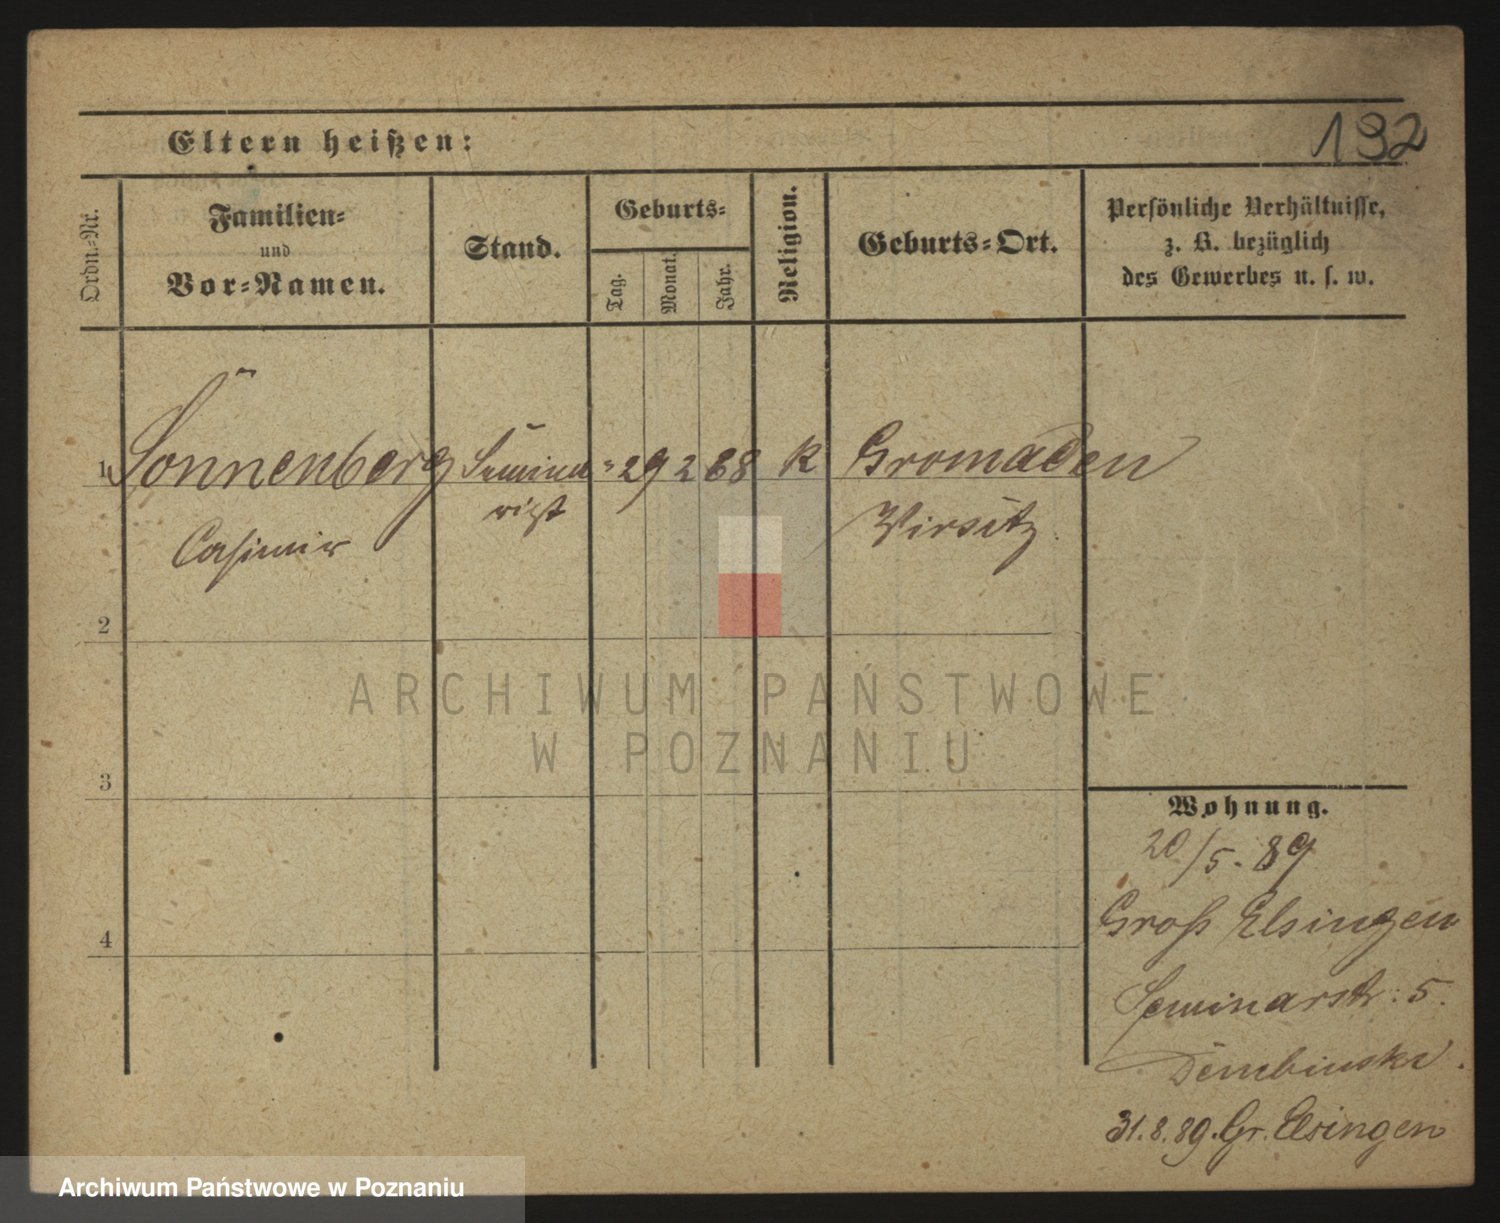 192
Eltern heißen:
Ordn.-Nr.
Familien-
und
Vor-Namen.
Stand.
Geburts-
Tag.
Monat.
Jahr.
Religion.
Geburts-Ort.
Persönliche Verhältnisse,
z. B. bezüglich
des Gewerbes u. s. w.
1 Sonnenberg Semina= 29 2 68 K Gromaden
rist Wirsitz
Casimir
2
3
4
Wohnung.
20/5. 89
Groß Elsingen
Seminarstr: 5.
Dembinski.
31.8.89. Gr. Elsingen
ARCHIWUM PAŃSTWOWE
W POZNANIU
Archiwum Państwowe w Poznaniu